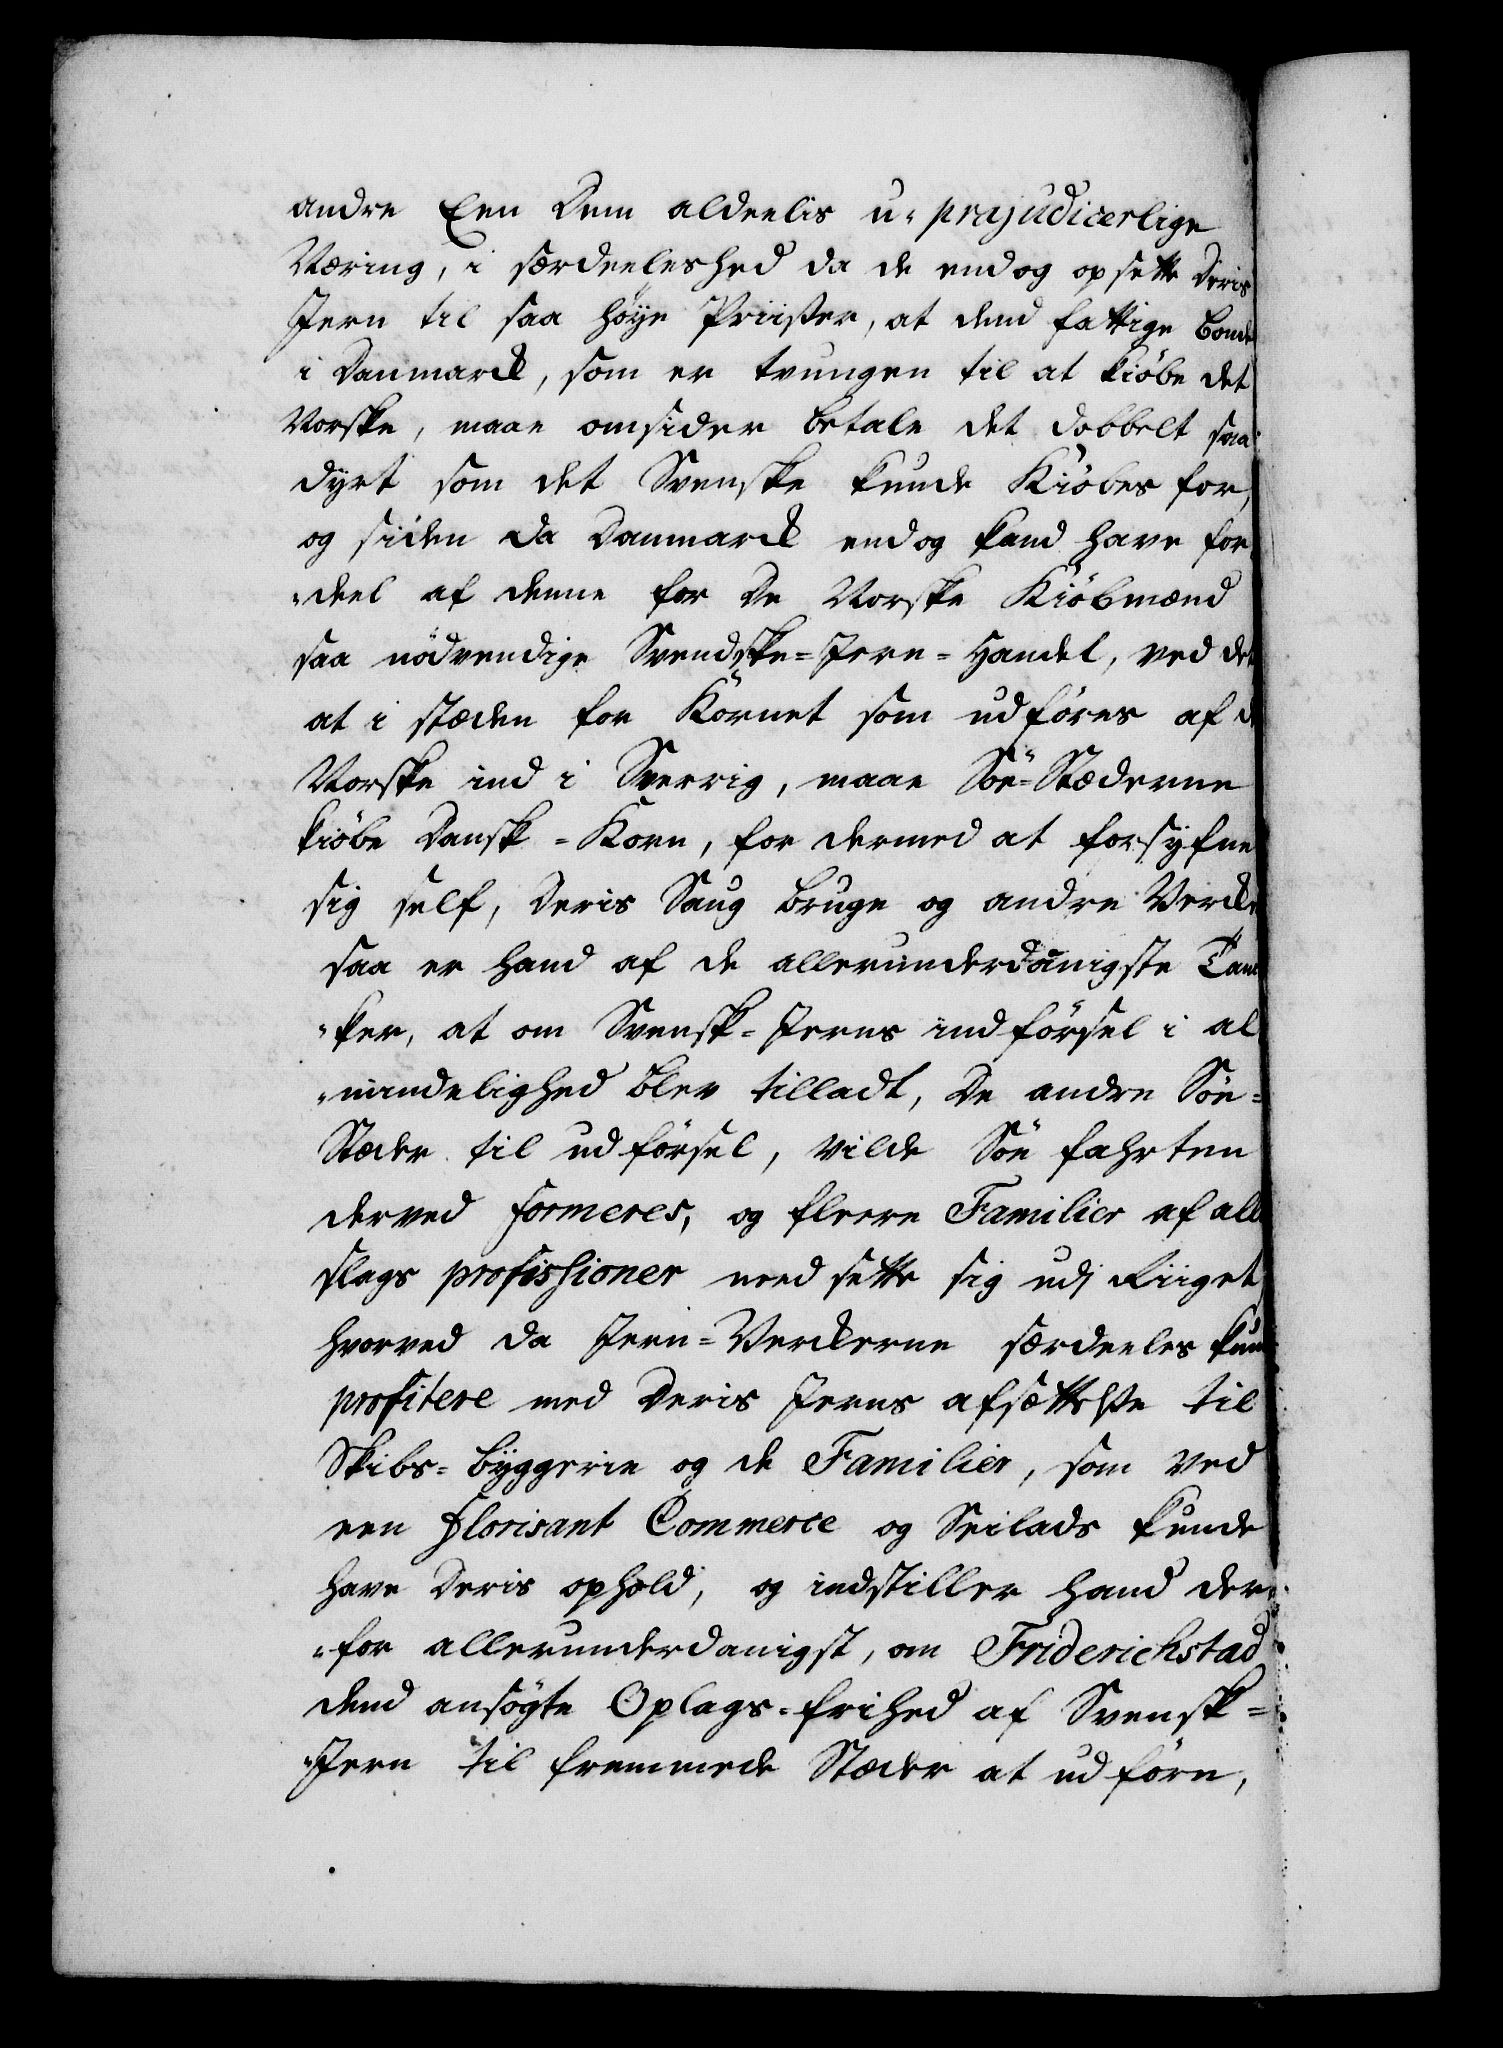 andre Een Dem aldeelis u-præjudicerlige
Næring, i særdeeleshed da de endog opsette Deris
Jern til saa høye Priißer, at dend fattige Bonde
i Danmarck, som er tvungen til at kiøbe det
Norske, maae omsider betale det dobbelt saa
dyrt som det Svenske kunde Kiøbes for,
og siden da Danmarck endog kand have for
-deel af denne for De Norske Kiøbmænd
saa nødvendige Svendske-Jern-Handel, ved det
at i stæden for Kornet som udføres af de
Norske ind i Sverrig, maae Søe-Stæderne
kiøbe Dansk-Korn, for dermed at forsyfne
sig self, Deris Saug Bruge og andre Vercke
saa er hand af de allerunderdanigste Tan
-ker, at om Svensk-Jerns indførsel i al
-mindelighed blev tilladt, De andre Søe-
Stæder til udførsel, vilde Søe fahrten
derved formeres, og fleere Familier af all
slags profissioner need sette sig udj Riiget,
hvorved da Jern-Verckerne særdeeles kun
profitere med Deris Jerns afsættelße til
Skibs-byggerie og de Familier, som ved
een florisant Commerce og Seilads kunde
have Deris ophold, og indstiller hand der-
-for allerunderdanigst, om Friderichstad
dend ansøgte Oplags-frihed af Svensk-
-Jern til fremmede Stæder at udføre,